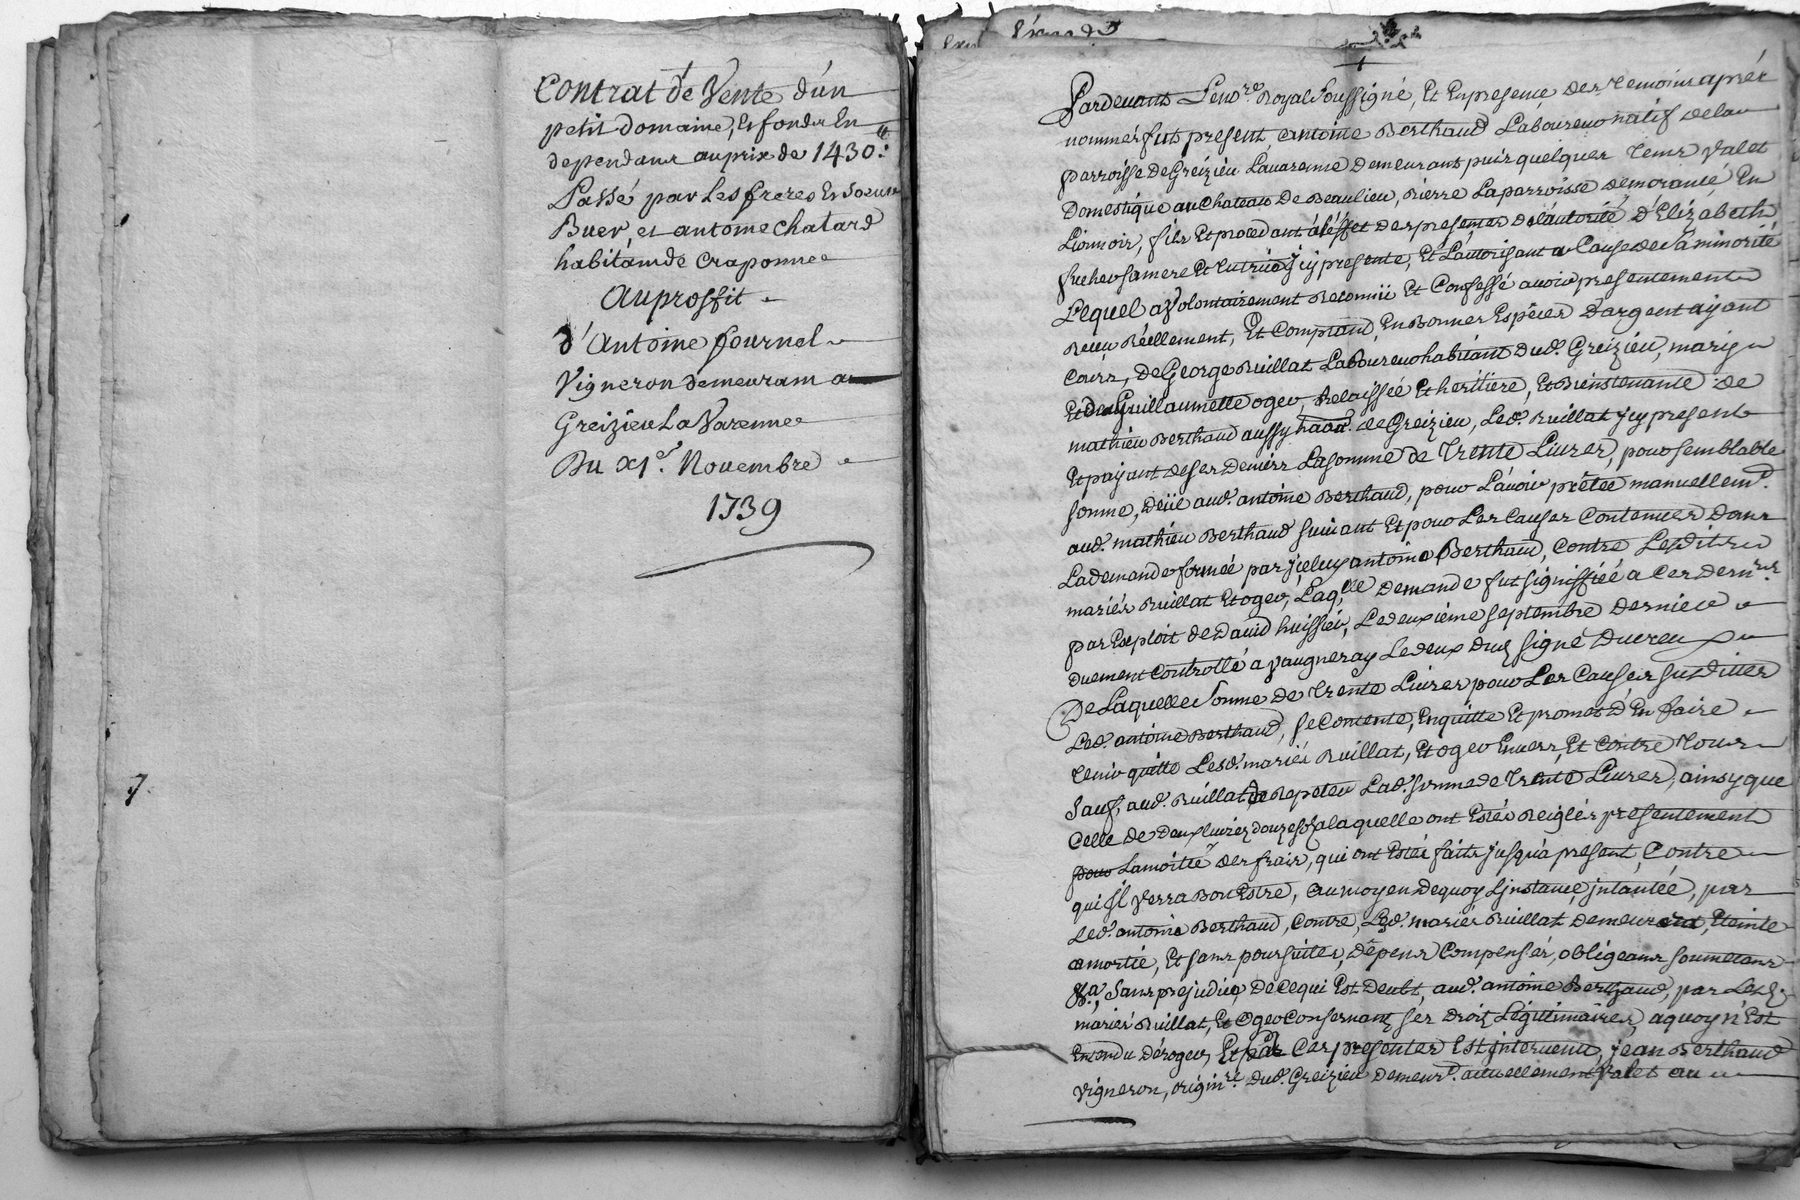 Contrat de Vente d'un
petit domaine, Et fonds En
dependans au prix de 1430.ᵗᵗ
Passé par Les freres Et Soeurs
Buer, et antoine Chatard
habitans de Craponne
Au proffit
d'Antoine fournel
Vigneron demeurant a
Greizieu La Varenne
Du XIᵉ. Novembre
1739
7
Pardevant Le noʳᵉ Royal Soussigné, Et En presence des temoins aprés
nommés fut present, antoine Berthaud Laboureur natif de la
parroisse de Greizieu Lavarenne Demeurant puis quelques tems valet
Domestique au Chateau De Beaulieu, Rierre La parroisse de morance En
Lionnois, fils Et procedant à l'effet des presentes de l'autorité d'Elizabeth
sa mere Et tutrice jcy presente, Et L'autorisant a Cause de Sa minorité
Lequel a volontairement Reconnü Et Confessé avoir presentement
Receu Réellement, Et Comptant, En Bonnes Espéces D'argent ayant
Cours, De George Ruillat Laboureur habitant Dud. Greizieu, mary
Et de Guillaumette oger, Relaissée Et heritiere, Et Bienstenante de
mathieu Berthaud aussy de Greizieu, Led. Ruillat jcy present
Et payant de ses Deniers La somme de Trente Livres, pour semblable
somme, Deüe aud. antoine Berthaud, pour L'avoir prêtée manuellemᵗ.
aud. mathieu Berthaud suivant Et pour Les Causes Contenues Dans
La demande formée par jceluy antoine Berthaud, Contre Lesdits
mariés Ruillat Et oger, Laqˡˡᵉ Demande fut signiffiée a Ces derniers
par Exploit de David huissier, Le deuxiéme septembre Dernier
Duement Controllé a Vaugneray Le deux Dud. signé Ducreux
De Laquelle Somme de Trente Livres pour Les Causes susdittes
Led. antoine Berthaud, se Contente, En quitte Et promet d'En faire
tenir quitte Lesd. mariés Ruillat, Et oger Envers, Et Contre Tous
Sauf, aud. Ruillat de Repeter Lad. somme de Trente Livres, ainsy que
Celle de Deux livres douze s. a laquelle ont Estés Reiglés presentement
pour La moitié des frais, qui ont Estés faits jusqu'a present, Contre
qui Jl verra Bon Estre, au moyen dequoy L'jnstance jntantée, par
Led. antoine Berthaud, Contre, Lesd. mariés Ruillat, Demeurera, Eteinte
amortie, Et sans poursuites, Dépens Compensés, obligeans soumetans
&ª, Sans prejudice De Ce qui Est Deubt, aud. antoine Berthaud, par Lesd.
mariés Ruillat, Et Oger Consernant ses Droits Légitimaires, a quoy n'Est
Entendu Déroger, Et par Ces presentes Est jntervenu, jean Berthaud
Vigneron, originʳᵉ Dud. Greizieu Demeurᵗ. actuellement valet au